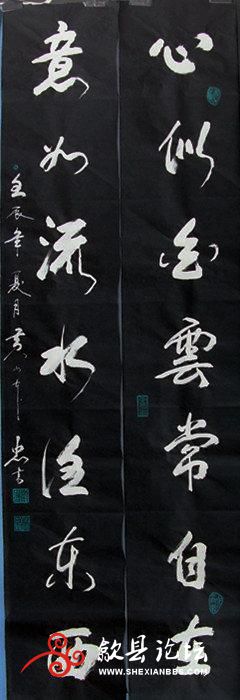 心似白雲常自在
意如流水任东西
壬辰年夏月黄山
歙县论坛
WWW.SHEXIANBBS.COM